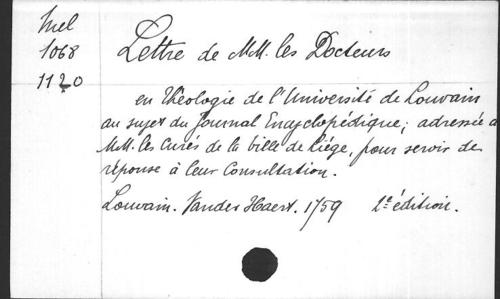 Mel
1068
1120
Lettre de MM. les Docteurs
en Théologie de l'Université de Louvain
au sujet du Journal Encyclopédique; adressée à
MM. les Curés de la ville de Liége, pour servir de
réponse à leur Consultation.
Louvain. Vander Haert. 1759 2e édition.